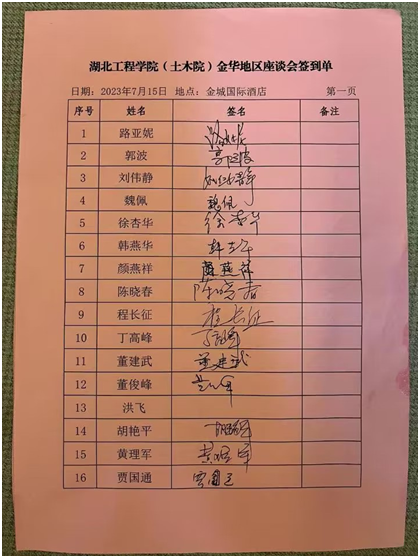 湖北工程学院（土木院）金华地区座谈会签到单
日期：2023年7月15日 地点：金城国际酒店 第一页
序号 姓名 签名 备注
1 路亚妮
2 郭波 郭波
3 刘伟静 刘伟静
4 魏佩 魏佩
5 徐杏华 徐杏华
6 韩燕华
7 颜燕祥 颜燕祥
8 陈晓春 陈晓春
9 程长征 程长征
10 丁高峰
11 董建武 董建武
12 董俊峰
13 洪飞
14 胡艳平
15 黄理军
16 贾国通